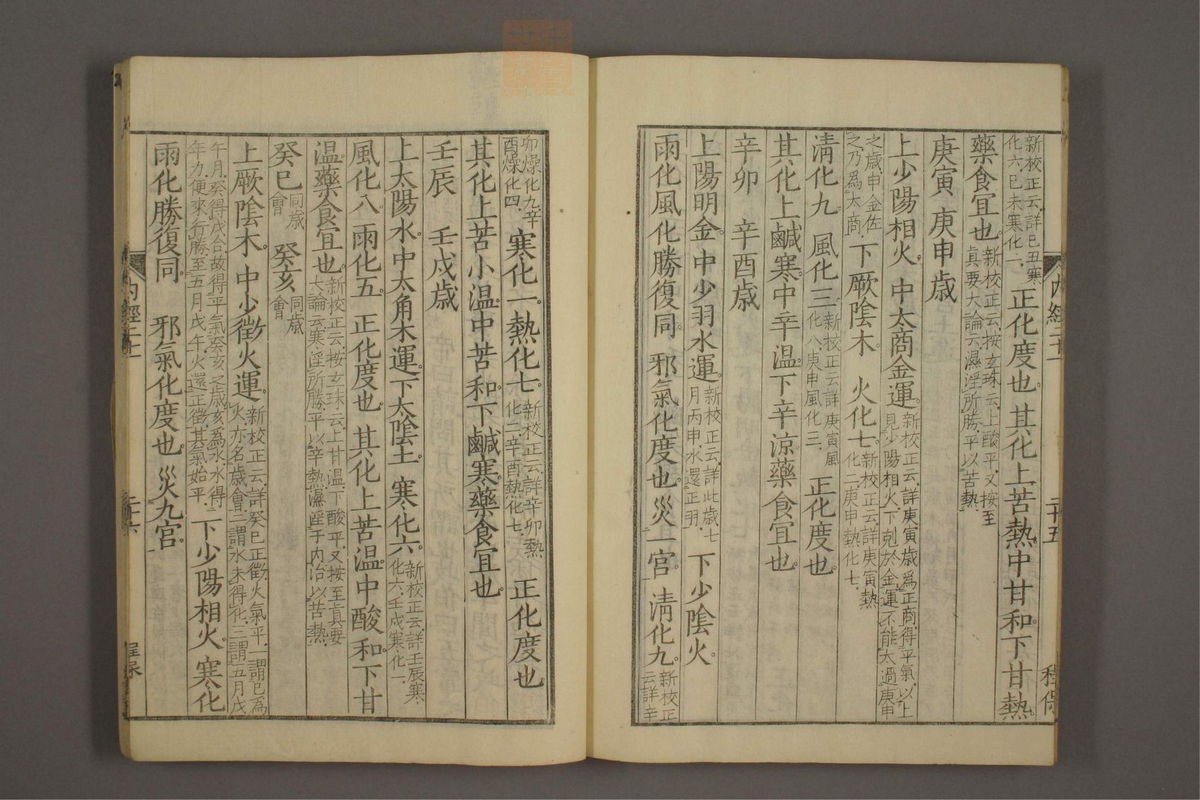 新校正云詳己丑寒化六己未寒化一 正化度也 其化上苦熱中甘和下甘熱
藥食宜也 新校正云按玄珠云上酸平又按至真要大論云濕淫所勝平以苦熱
庚寅 庚申歲
上少陽相火 中太商金運 新校正云詳庚寅歲為正商得平氣以上見少陽相火下剋於金運不能太過庚申
之歲申金佐之乃為太商 下厥陰木 火化七 新校正云詳庚寅熱化二庚申熱化七
清化九 風化三 新校正云詳庚寅風化八庚申風化三 正化度也
其化上鹹寒中辛温下辛涼藥食宜也
辛卯 辛酉歲
上陽明金 中少羽水運 新校正云詳此歲七月丙申水還正羽 下少陰火
雨化風化勝復同 邪氣化度也 災一宮 清化九 新校正云詳辛
内經二十一 二十五
卯燥化九辛酉燥化四 寒化一 熱化七 新校正云詳辛卯熱化二辛酉熱化七 正化度也
其化上苦小温中苦和下鹹寒藥食宜也
壬辰 壬戌歲
上太陽水 中太角木運 下太陰土 寒化六 新校正云詳壬辰寒化六壬戌寒化一
風化八 雨化五 正化度也 其化上苦温中酸和下甘
温藥食宜也 新校正云按玄珠云上甘温下酸平又按至真要大論云寒淫所勝平以辛熱濕淫于内治以苦熱
癸巳 同歲會 癸亥 同歲會
上厥陰木 中少徵火運 新校正云詳癸巳正徵火氣平一謂巳為火亦名歲會二謂水未得化三謂五月戊
午月癸得戊合故得平氣癸亥之歲亥為水水得年力便來行勝至五月戊午火還正徵其氣始平 下少陽相火 寒化
雨化勝復同 邪氣化度也 災九宮
内經二十一 二十六